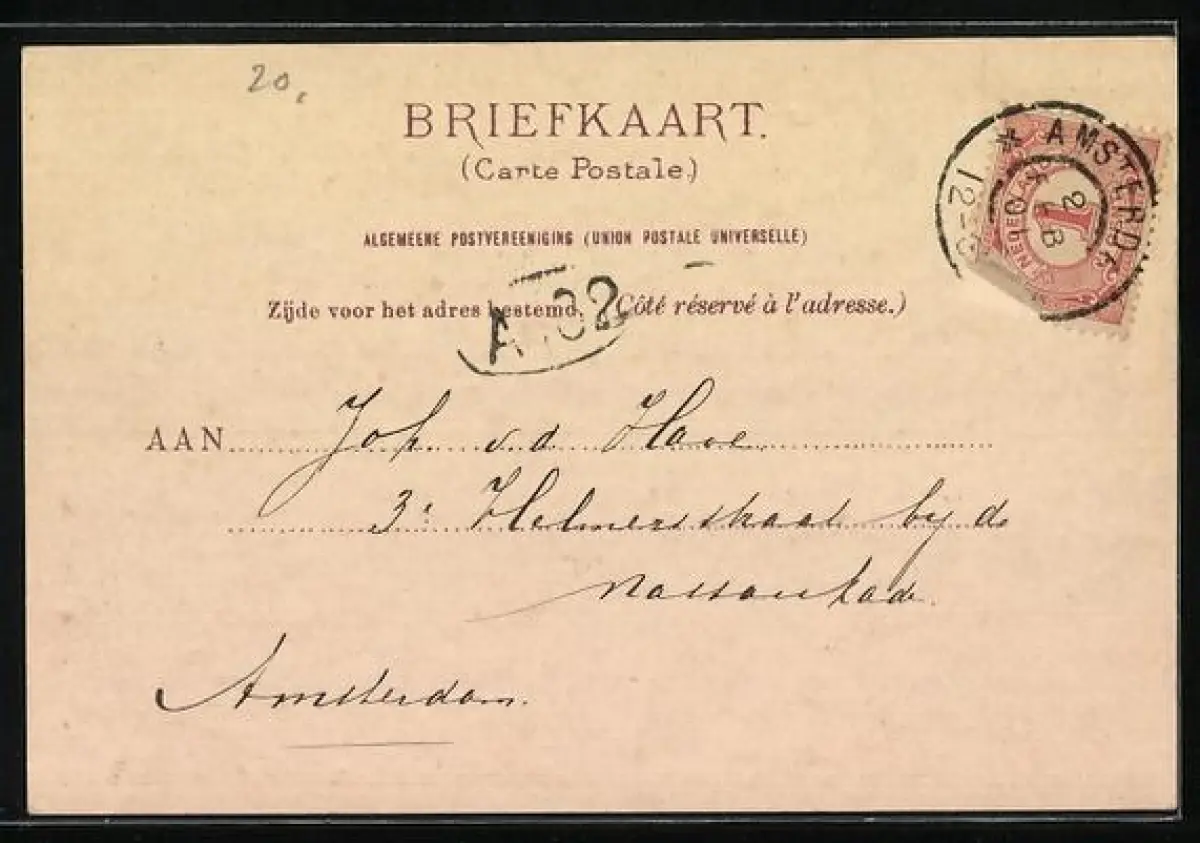 20,
BRIEFKAART.
(Carte Postale.)
ALGEMEENE POSTVEREENIGING (UNION POSTALE UNIVERSELLE)
Zijde voor het adres bestemd. (Côté réservé à l'adresse.)
AMSTERDA
12-
2
FEB
01
NEDERLAND
1
A 32
AAN Joh. v.d. Have
3e Helmersstraat by de
Nassaukade.
Amsterdam.